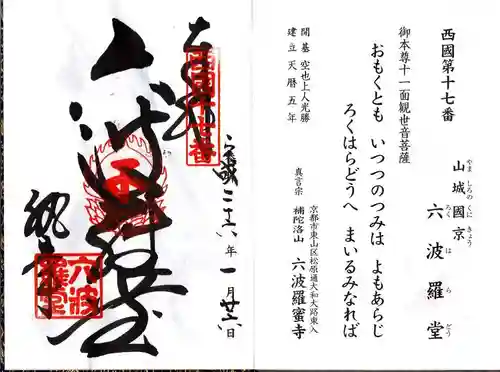 西國第十七番
山城國京 六波羅堂
やま しろの くに きょう ろく は ら どう
御本尊十一面観世音菩薩
おもくとも いつつのつみは よもあらじ
ろくはらどうへ まいるみなれば
開基 空也上人光勝
建立 天暦五年
京都市東山区松原通大和大路東入
真言宗 補陀洛山 六波羅蜜寺
西国十七番
六波羅堂
六波羅堂
年一月廿六日